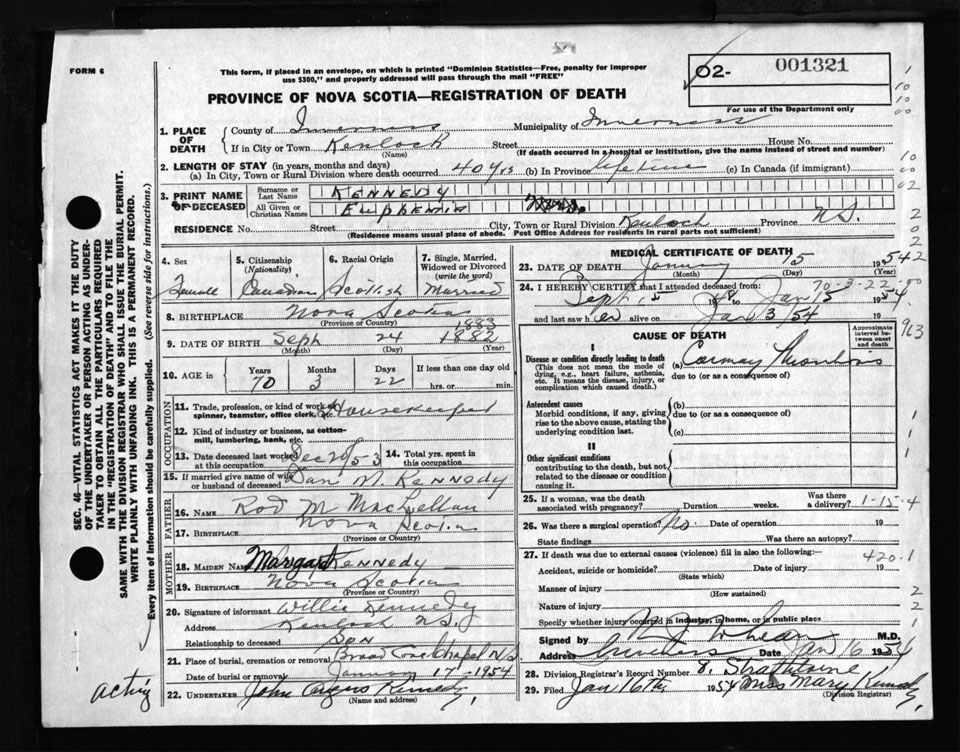 FORM 6
This form, if placed in an envelope, on which is printed "Dominion Statistics—Free, penalty for improper
use $300," and properly addressed will pass through the mail "FREE"
PROVINCE OF NOVA SCOTIA—REGISTRATION OF DEATH
02- 001321
For use of the Department only
1. PLACE OF DEATH
County of Inverness Municipality of Inverness
If in City or Town Kenlock Street House No.
(Name) (If death occurred in a hospital or institution, give the name instead of street and number)
2. LENGTH OF STAY (in years, months and days)
(a) In City, Town or Rural Division where death occurred 40 yrs (b) In Province lifetime (c) In Canada (if immigrant)
3. PRINT NAME OF DECEASED
Surname or Last Name KENNEDY
All Given or Christian Names EUPHEMIA Mrs.
RESIDENCE No. Street City, Town or Rural Division Kenloch Province N.S.
(Residence means usual place of abode. Post Office Address for residents in rural parts not sufficient)
4. Sex Female
5. Citizenship (Nationality) Canadian
6. Racial Origin Scotish
7. Single, Married, Widowed or Divorced (write the word) Married
8. BIRTHPLACE Nova Scotia
(Province or Country)
1883
9. DATE OF BIRTH Seph 24 1882
(Month) (Day) (Year)
10. AGE in Years 70 Months 3 Days 22 If less than one day hrs. or min.
OCCUPATION
11. Trade, profession, or kind of work as spinner, teamster, office clerk, etc. Housekeeper
12. Kind of industry or business, as cotton-mill, lumbering, bank, etc.
13. Date deceased last worked at this occupation Dec 20/53
14. Total yrs. spent in this occupation
15. If married give name of wife or husband of deceased Dan N. Kennedy
FATHER
16. NAME Rod M MacLellan
17. BIRTHPLACE Nova Scotia
(Province or Country)
MOTHER
18. MAIDEN NAME Margaret Kennedy
19. BIRTHPLACE Nova Scotia
(Province or Country)
20. Signature of informant Willie Kennedy
Address Kenloch N.S.
Relationship to deceased Son
21. Place of burial, cremation or removal Broad Cove Chapel N.S
Date of burial or removal January 17 - 1954
acting
22. UNDERTAKER John Angus Kennedy
(Name and address)
MEDICAL CERTIFICATE OF DEATH
23. DATE OF DEATH January 15 1954
(Month) (Day) (Year)
70-3-22-00
24. I HEREBY CERTIFY that I attended deceased from
Sept. 15 1948 to Jan 15 1954
and last saw her alive on Jan 13/54
CAUSE OF DEATH
Approximate interval between onset and death
I
Disease or condition directly leading to death
(This does not mean the mode of dying, e.g., heart failure, asthenia, etc. It means the disease, injury, or complication which caused death.)
(a) Coronary Thrombosis
due to (or as a consequence of)
Antecedent causes
Morbid conditions, if any, giving rise to the above cause, stating the underlying condition last.
(b)
due to (or as a consequence of)
(c)
II
Other significant conditions
contributing to the death, but not related to the disease or condition causing it.
25. If a woman, was the death associated with pregnancy? Duration weeks. Was there a delivery?
1-15-4
26. Was there a surgical operation? No. Date of operation 19
State findings Was there an autopsy?
27. If death was due to external causes (violence) fill in also the following:—
420.1
Accident, suicide or homicide? Date of injury 19
(State which)
Manner of injury
(How sustained)
Nature of injury
Specify whether injury occurred in industry, in home, or in public place
Signed by M.D.
Address Inverness Date Jan 16 1954
28. Division Registrar's Record Number 8, Strathlorne
29. Filed Jan 16th 1954 Miss Mary Kennedy
(Division Registrar)
SEC. 46—VITAL STATISTICS ACT MAKES IT THE DUTY
OF THE UNDERTAKER OR PERSON ACTING AS UNDER-
TAKER TO OBTAIN ALL THE PARTICULARS REQUIRED
IN THE "REGISTRATION OF DEATH" AND TO FILE THE
SAME WITH THE DIVISION REGISTRAR WHO SHALL ISSUE THE BURIAL PERMIT.
WRITE PLAINLY WITH UNFADING INK. THIS IS A PERMANENT RECORD.
Every item of information should be carefully supplied. (See reverse side for instructions.)